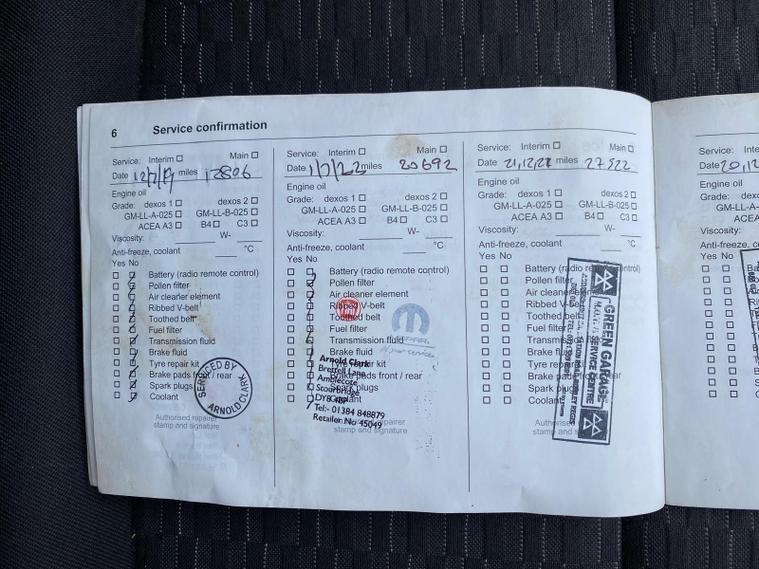 6 Service confirmation
Service: Interim ☐ Main ☐
Date 12/7/19 miles 12806
Engine oil
Grade: dexos 1 ☐ dexos 2 ☐
GM-LL-A-025 ☐ GM-LL-B-025 ☐
ACEA A3 ☐ B4 ☐ C3 ☐
Viscosity: W-
Anti-freeze, coolant °C
Yes No
Battery (radio remote control)
Pollen filter
Air cleaner element
Ribbed V-belt
Toothed belt
Fuel filter
Transmission fluid
Brake fluid
Tyre repair kit
Brake pads front / rear
Spark plugs
Coolant
SERVICED BY
ARNOLD CLARK
Authorised repairer
stamp and signature
Service: Interim ☐ Main ☐
Date 1/7/22 miles 20692
Engine oil
Grade: dexos 1 ☐ dexos 2 ☐
GM-LL-A-025 ☐ GM-LL-B-025 ☐
ACEA A3 ☐ B4 ☐ C3 ☐
Viscosity: W-
Anti-freeze, coolant °C
Yes No
Battery (radio remote control)
Pollen filter
Air cleaner element
Ribbed V-belt
Toothed belt
Fuel filter
Transmission fluid
Brake fluid
Tyre repair kit
Brake pads front / rear
Spark plugs
Coolant
Arnold Clark
Brettell Lane
Amblecote
Stourbridge
Tel:- 01384 848879
Retailer No 45049
stamp and signature
Service: Interim ☐ Main ☐
Date miles 27522
Engine oil
Grade: dexos 1 ☐ dexos 2 ☐
GM-LL-A-025 ☐ GM-LL-B-025 ☐
ACEA A3 ☐ B4 ☐ C3 ☐
Viscosity: W-
Anti-freeze, coolant °C
Yes No
Battery (radio remote control)
Pollen filter
Air cleaner
Ribbed V-belt
Toothed belt
Fuel filter
Transmission
Brake fluid
Tyre repair
Brake pads
Spark plugs
Coolant
GREEN GARAGE
SERVICE CENTRE
Authorised
stamp and
Service: Interim ☐
Date 20,12
Engine oil
Grade: dexos
GM-LL-A-025
ACEA
Viscosity:
Anti-freeze, co
Yes No